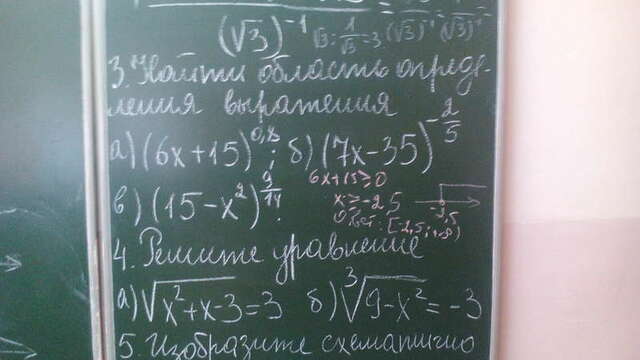 (√3)⁻¹
3. Найти область опреде-
ления выражения
а) (6x+15)^0,8 ; б) (7x-35)^-2/5
6x+15≥0
в) (15-x²)^9/14.
x≥-2,5
-2,5
Ответ: [-2,5;+∞)
4. Решите уравнение
а) √x²+x-3=3 б) ³√9-x²=-3
5. Изобразите схематично